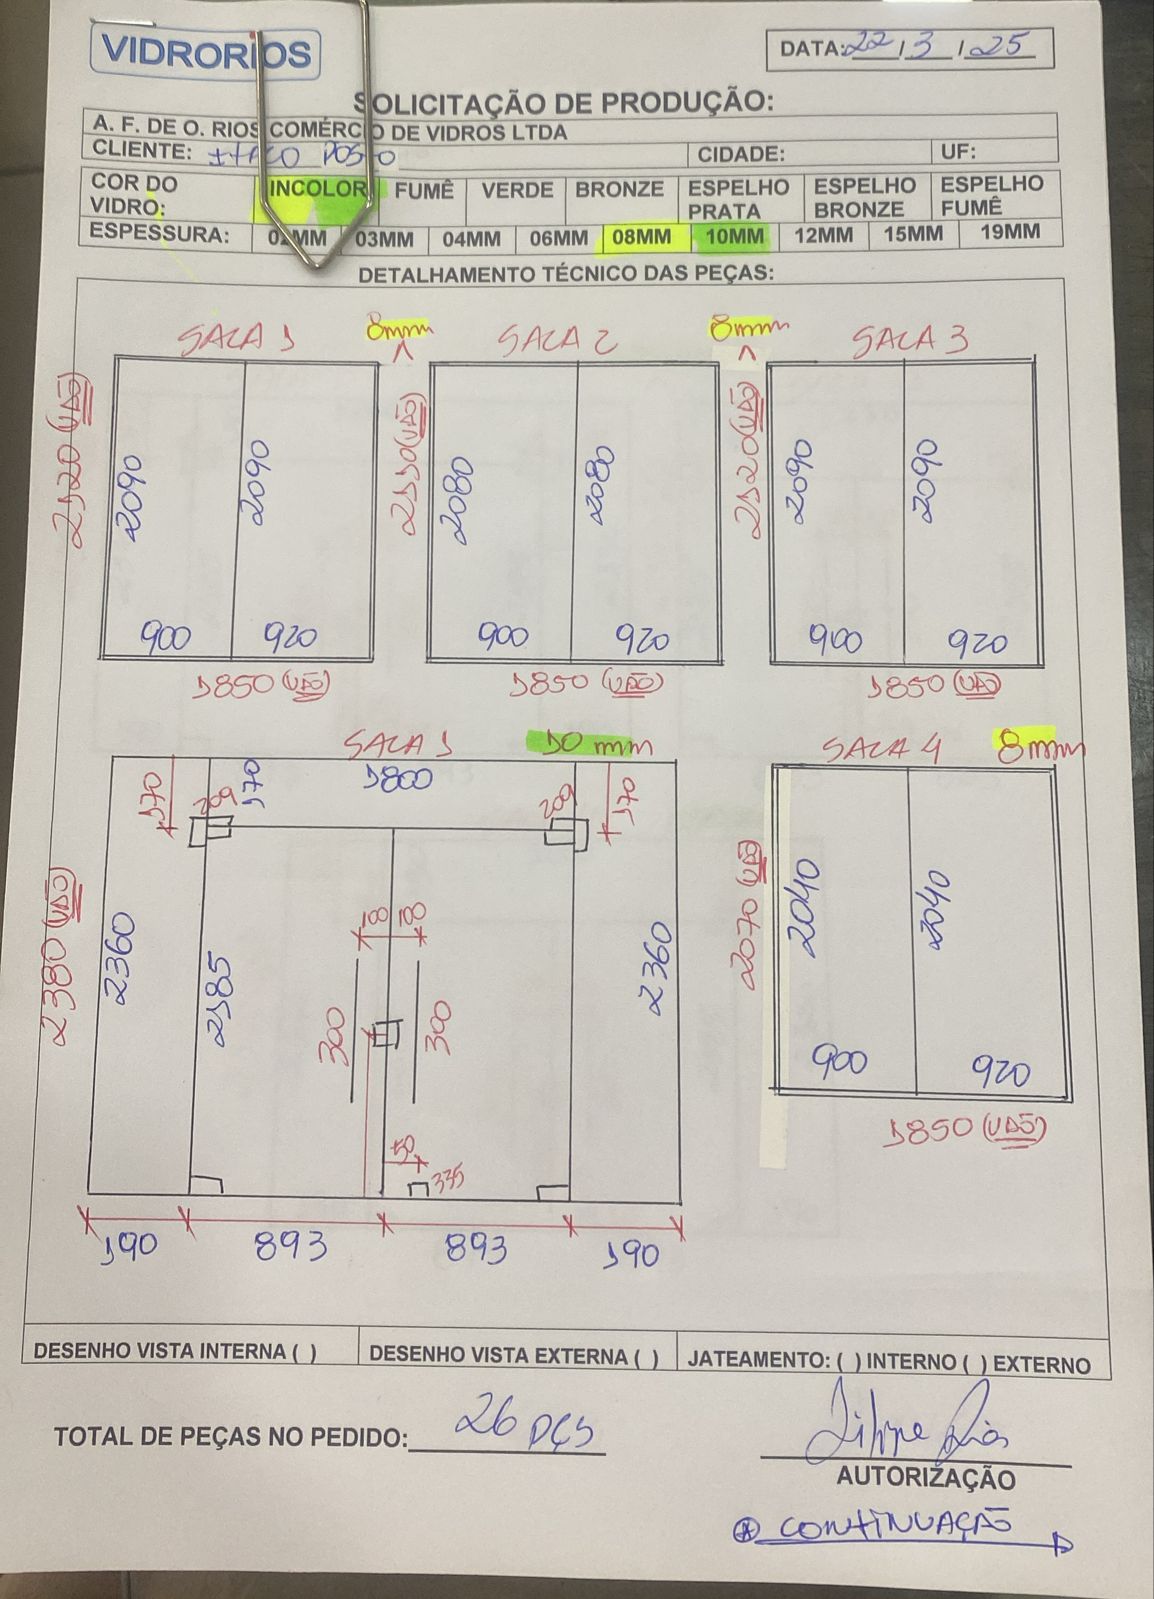 VIDRORIOS
DATA: 22 / 3 / 25
SOLICITAÇÃO DE PRODUÇÃO:
A. F. DE O. RIOS COMÉRCIO DE VIDROS LTDA
CLIENTE: ITALO POSTO CIDADE: UF:
COR DO VIDRO: INCOLOR FUMÊ VERDE BRONZE ESPELHO PRATA ESPELHO BRONZE ESPELHO FUMÊ
ESPESSURA: 02MM 03MM 04MM 06MM 08MM 10MM 12MM 15MM 19MM
DETALHAMENTO TÉCNICO DAS PEÇAS:
SALA 1 8mm SALA 2 8mm SALA 3
2120 (VÃO) 2090 2090 2110 (VÃO) 2080 2080 2120 (VÃO) 2090 2090
900 920 900 920 900 920
1850 (VÃO) 1850 (VÃO) 1850 (VÃO)
SALA 1 10 mm SALA 4 8mm
1800
170 209 170 209 170
2380 (VÃO) 2360 2185 2360 2070 (VÃO) 2040 2040
100 100
300 300
900 920
1850 (VÃO)
50
335
190 893 893 190
DESENHO VISTA INTERNA ( ) DESENHO VISTA EXTERNA ( ) JATEAMENTO: ( ) INTERNO ( ) EXTERNO
TOTAL DE PEÇAS NO PEDIDO: 26 pçs
Filipe Rios
AUTORIZAÇÃO
CONTINUAÇÃO